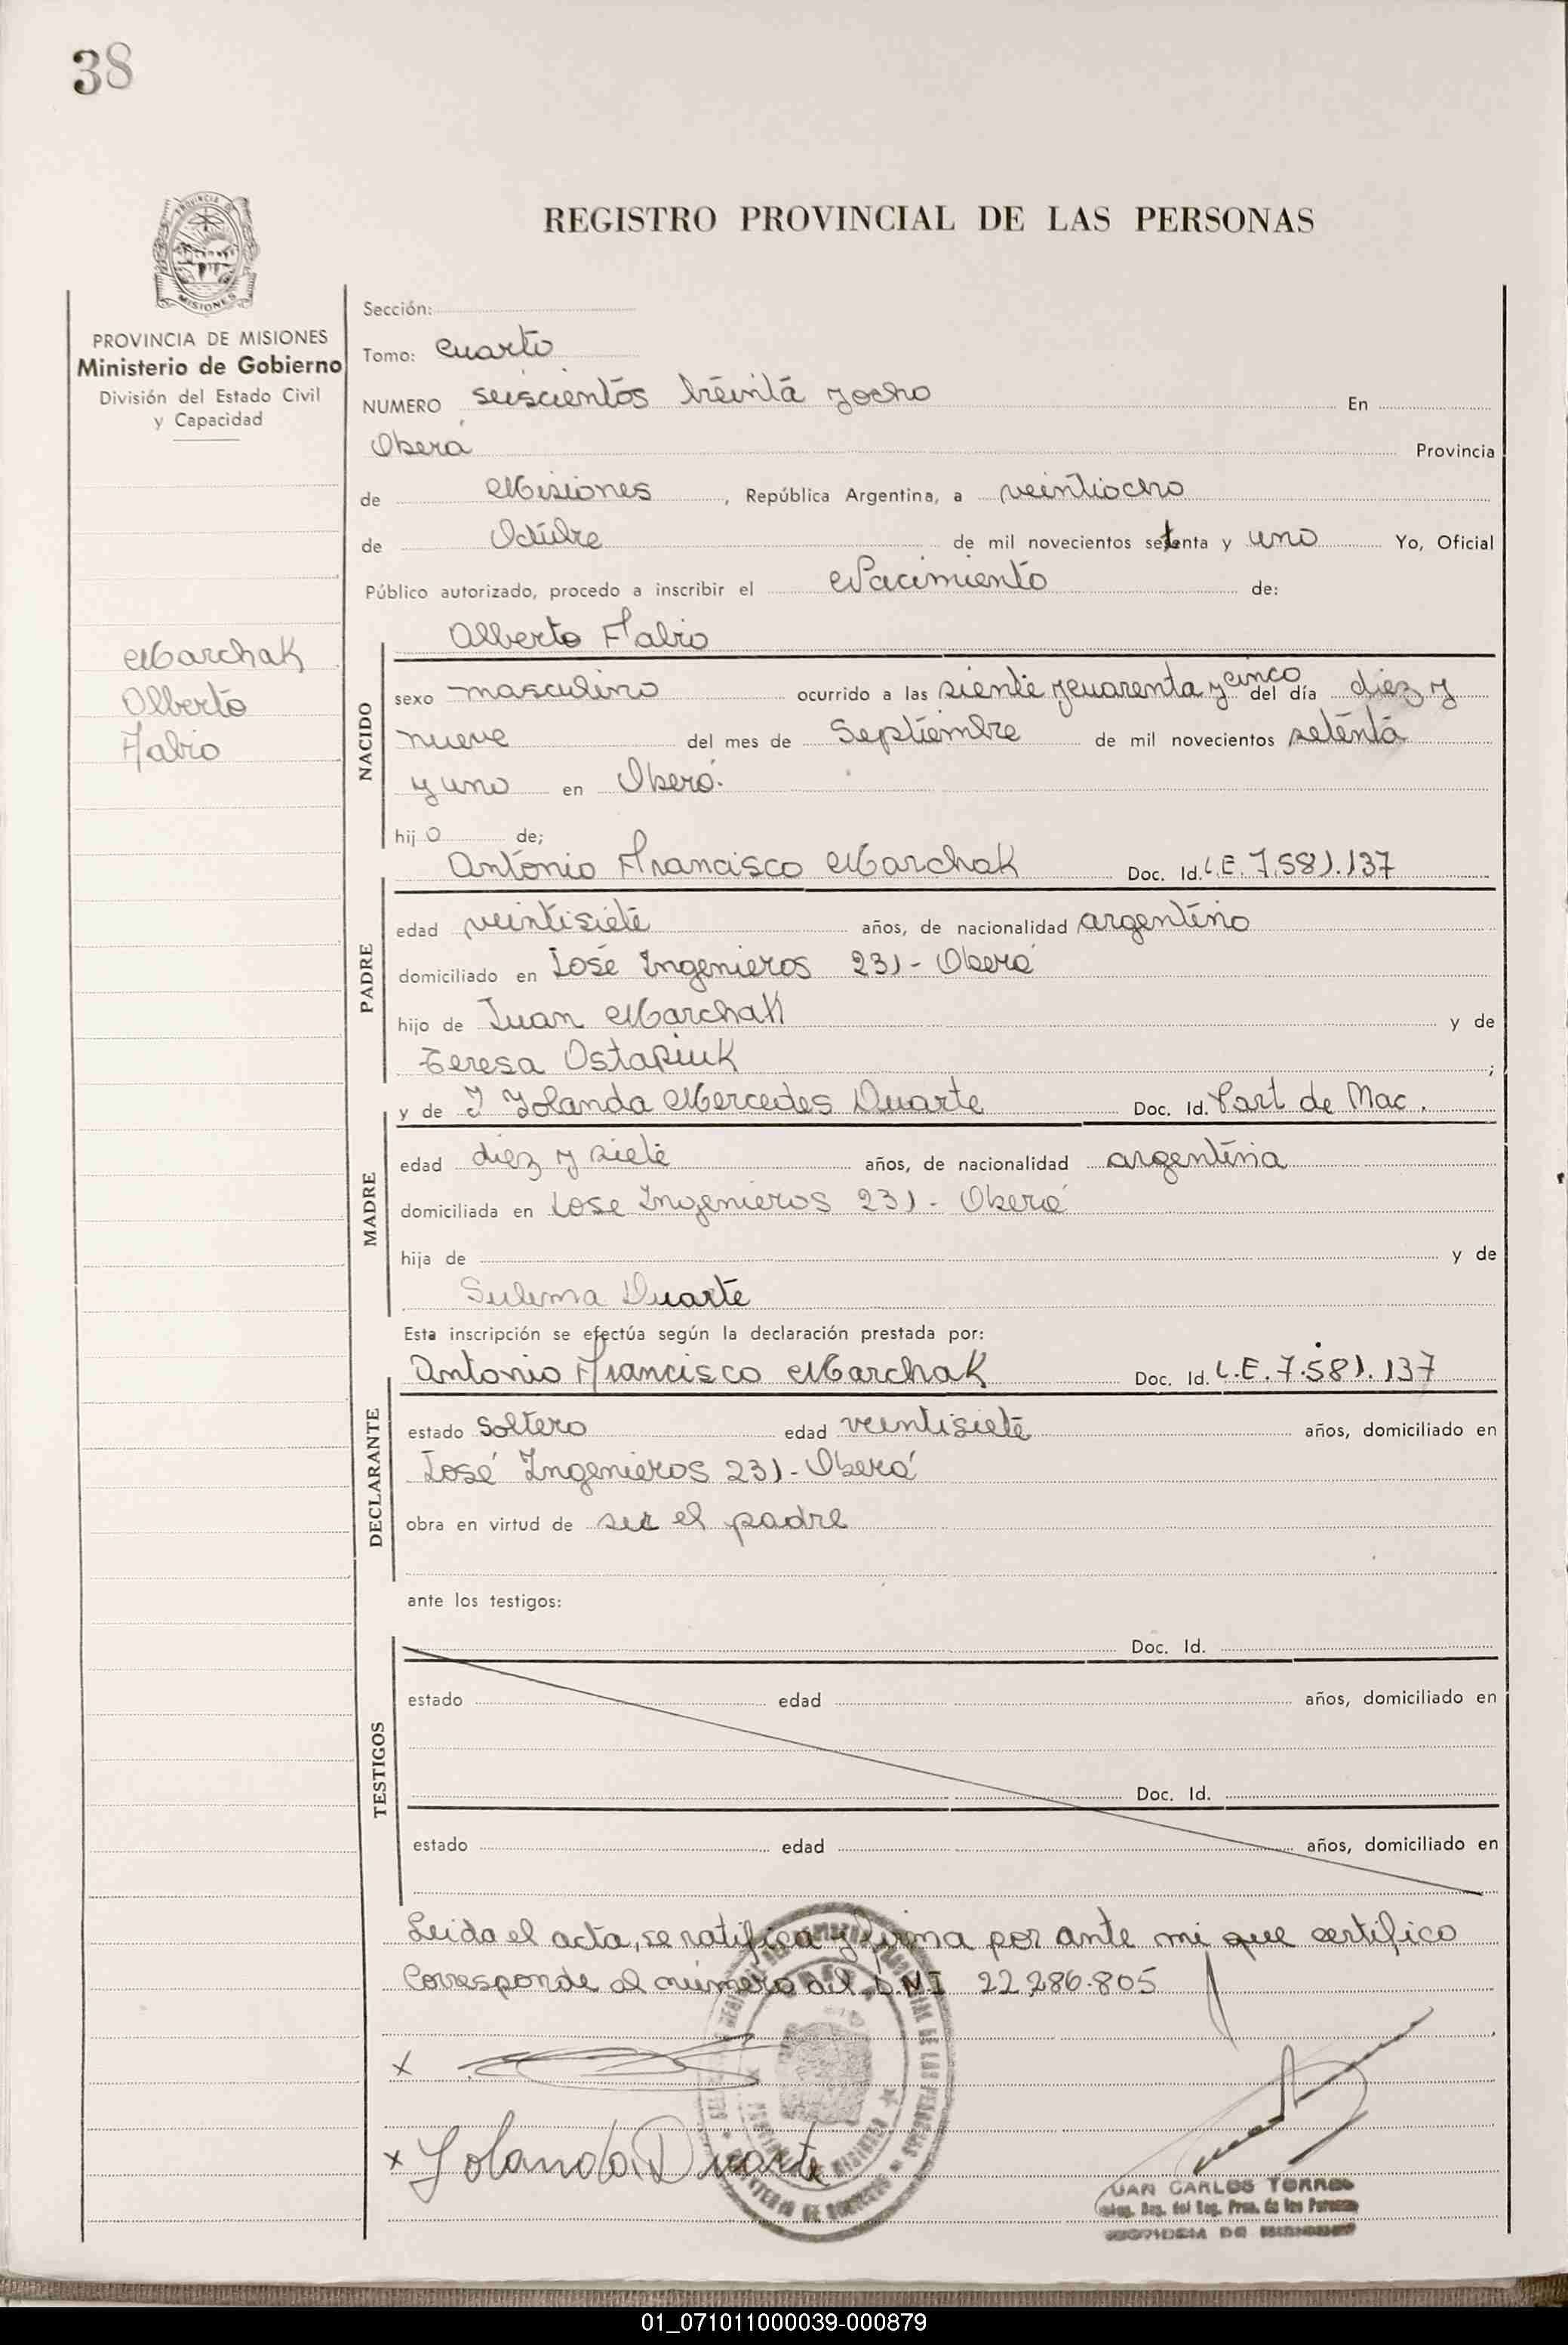 38
REGISTRO PROVINCIAL DE LAS PERSONAS
PROVINCIA DE MISIONES
Ministerio de Gobierno
División del Estado Civil
y Capacidad
Marchak
Alberto
Fabio
Sección:
Tomo: Cuarto
NUMERO seiscientos treinta y ocho En
Oberá Provincia
de Misiones, República Argentina, a veintiocho
de Octubre de mil novecientos setenta y uno Yo, Oficial
Público autorizado, procedo a inscribir el Nacimiento de:
Alberto Fabio
NACIDO
sexo masculino ocurrido a las siente y cuarenta y cinco del día diez y
nueve del mes de Septiembre de mil novecientos setenta
y uno en Oberá.
hijo de;
Antonio Francisco Marchak Doc. Id. L.E. 7.581.137
PADRE
edad veintisiete años, de nacionalidad argentino
domiciliado en José Ingenieros 231 - Oberá
hijo de Juan Marchak y de
Teresa Ostapiuk;
y de Yolanda Mercedes Duarte Doc. Id. Part de Nac.
MADRE
edad diez y siete años, de nacionalidad argentina
domiciliada en José Ingenieros 231 - Oberá
hija de y de
Sulema Duarte
Esta inscripción se efectúa según la declaración prestada por:
Antonio Francisco Marchak Doc. Id. L.E. 7.581.137
DECLARANTE
estado soltero edad veintisiete años, domiciliado en
José Ingenieros 231 - Oberá
obra en virtud de ser el padre
ante los testigos:
TESTIGOS
Doc. Id.
estado edad años, domiciliado en
Doc. Id.
estado edad años, domiciliado en
Leida el acta, se ratifica y firma por ante mi que certifico
Corresponde al número del D.N.I 22.286.805
x
x Yolanda Duarte
JUAN CARLOS TORRES
01_071011000039-000879